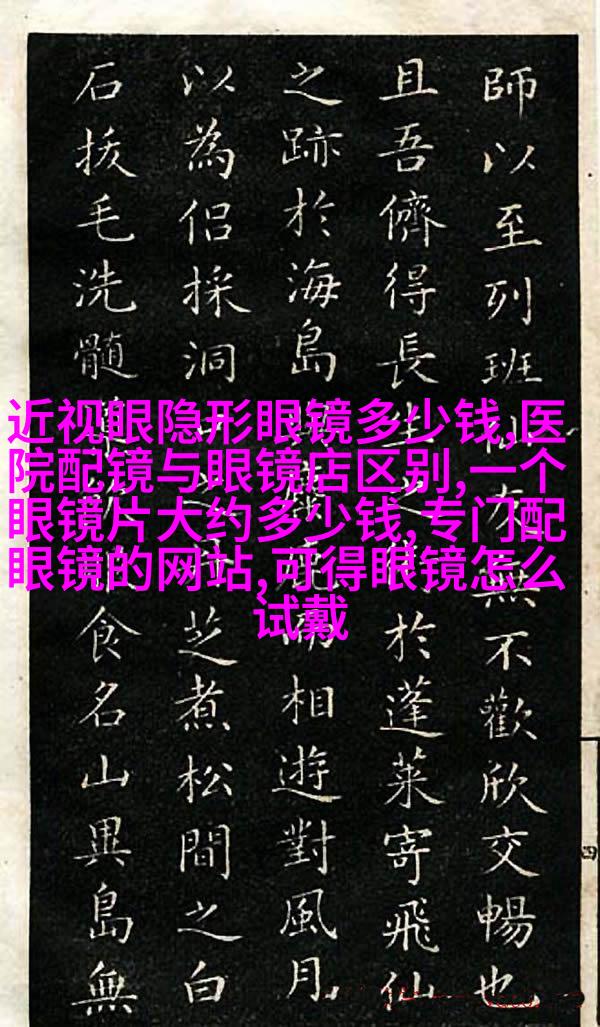 師以至列班仙無不歡欣交暢也
且吾儕得長生於蓬萊寄飛仙
之跡於海島相遊對風月
以為侶採洞芝煮松間之白
石拔毛洗髓食名山異島無
近视眼隐形眼镜多少钱,医
院配镜与眼镜店区别,一个
眼镜片大约多少钱,专门配
眼镜的网站,可得眼镜怎么
试戴